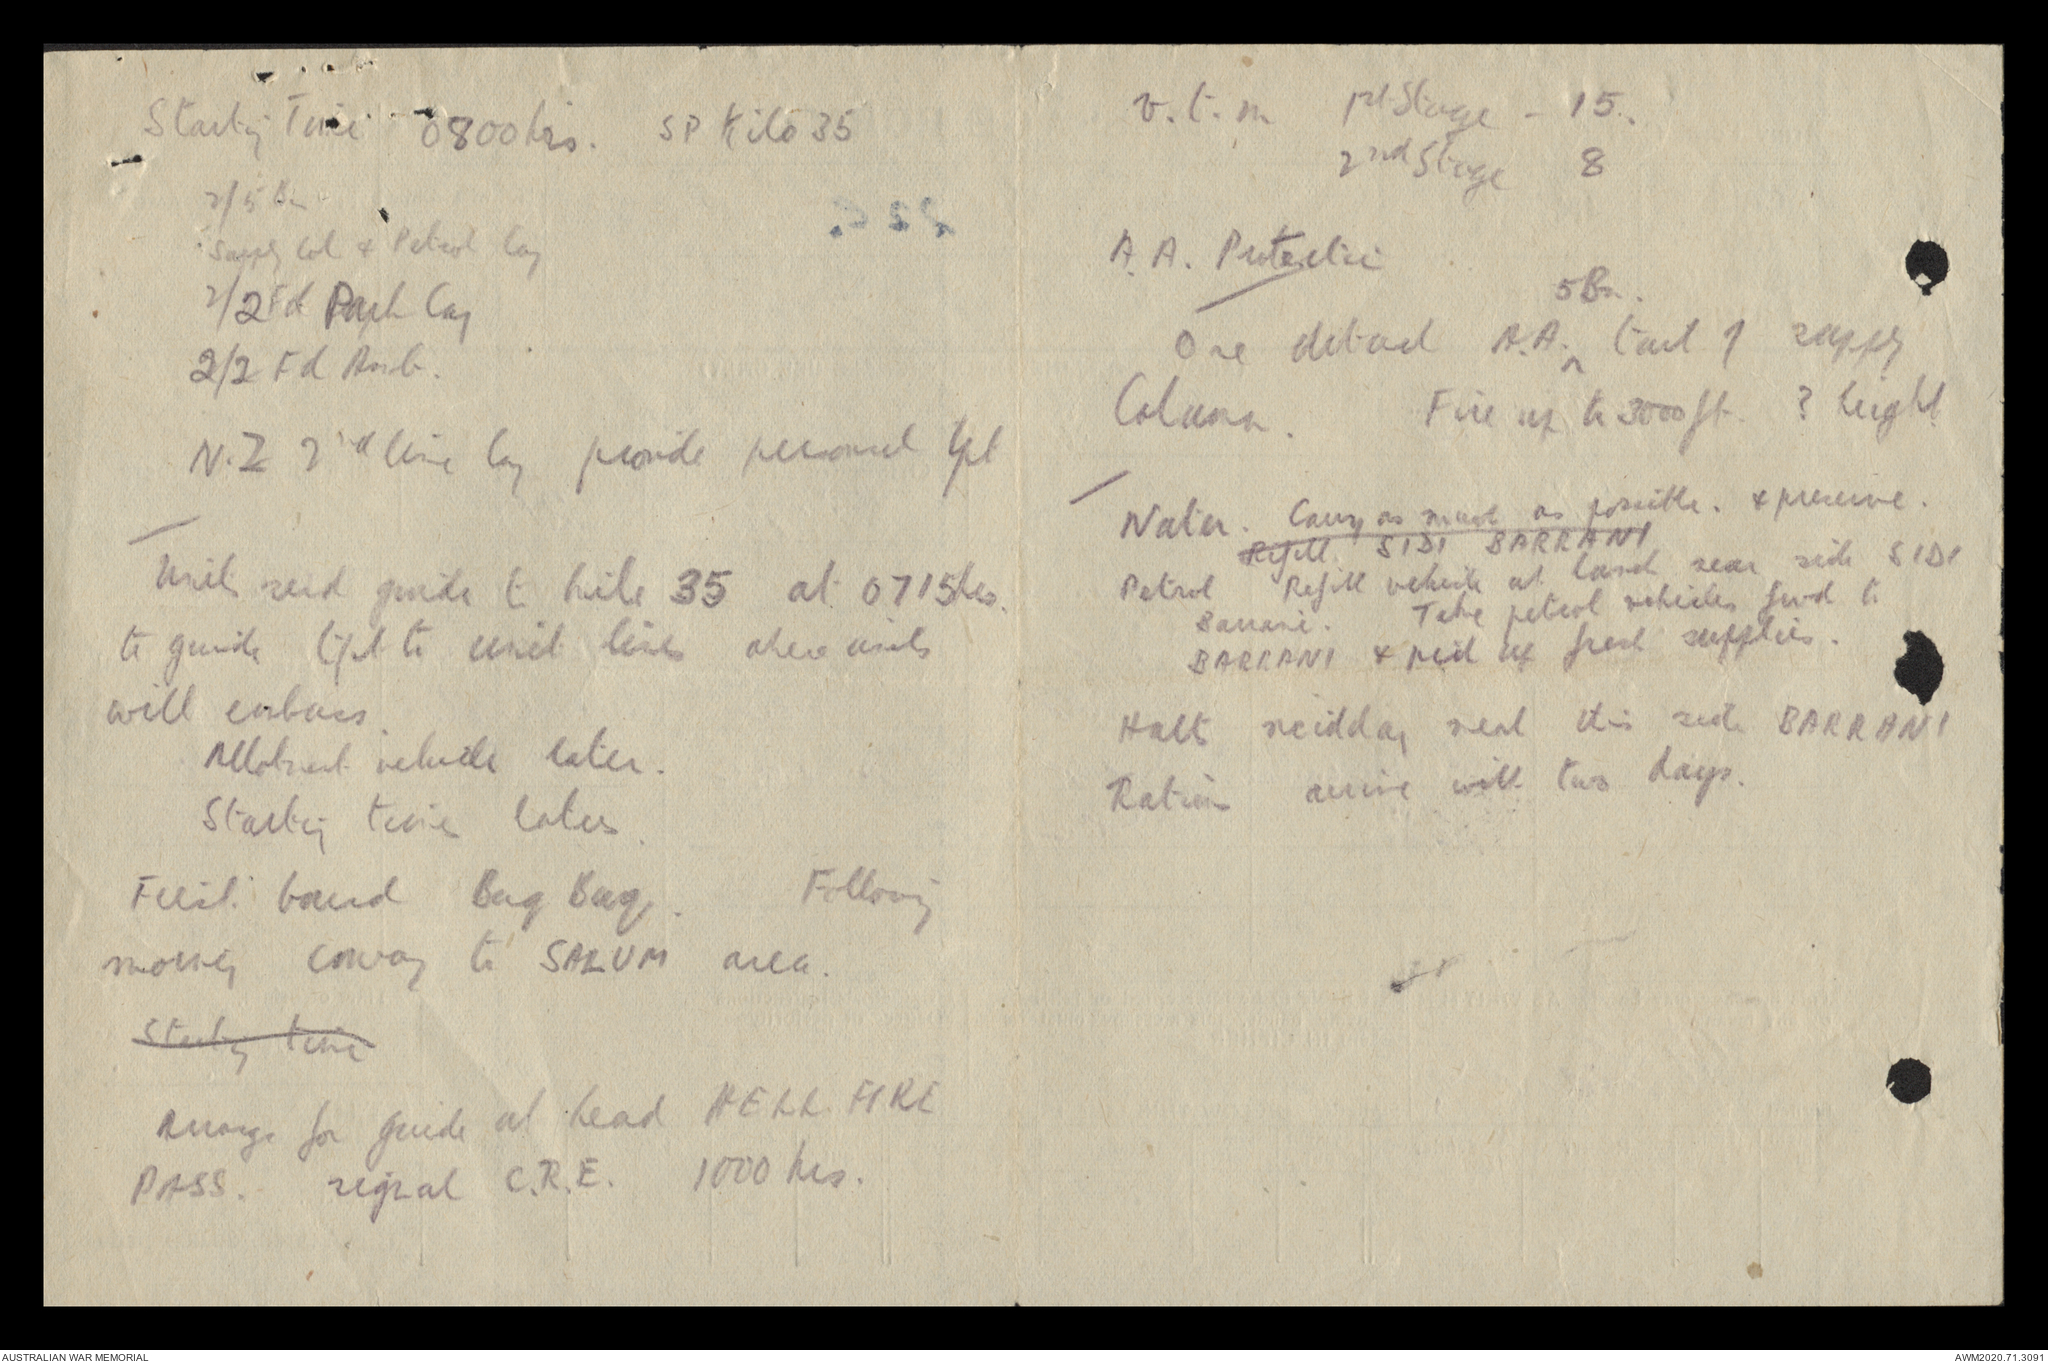 Starting Time 0800 hrs. SP Kilo 35
2/5 Bn
Supply Col & Petrol Coy
2/2 Fd Park Coy
2/2 Fd Amb.
N.Z 2nd line Coy provide personnel tpt
Units send guide to kilo 35 at 0715 hrs.
to guide tpt to unit lines where units
will embuss.
Allotment vehicle later.
Starting times later.
First bound Bug Bug. Following
morning convoy to SALUM area.
Starting time
Arrange for guide at head HELL FIRE
PASS. signal C.R.E. 1000 hrs.
v.t.m 1st Stage - 15.
2nd Stage 8
A.A. Protection
5 Bn.
One detach A.A. tail of supply
Column. Fire up to 3000 ft. ? height
Water. Carry as much as possible. & preserve.
Refill SIDI BARRANI
Petrol Refill vehicle at near side SIDI
Barrani. Take petrol vehicles fwd to
BARRANI & pick up fresh supplies.
Halts midday meal this side BARRANI
Rations arrive with two days.
AUSTRALIAN WAR MEMORIAL
AWM2020.71.3091